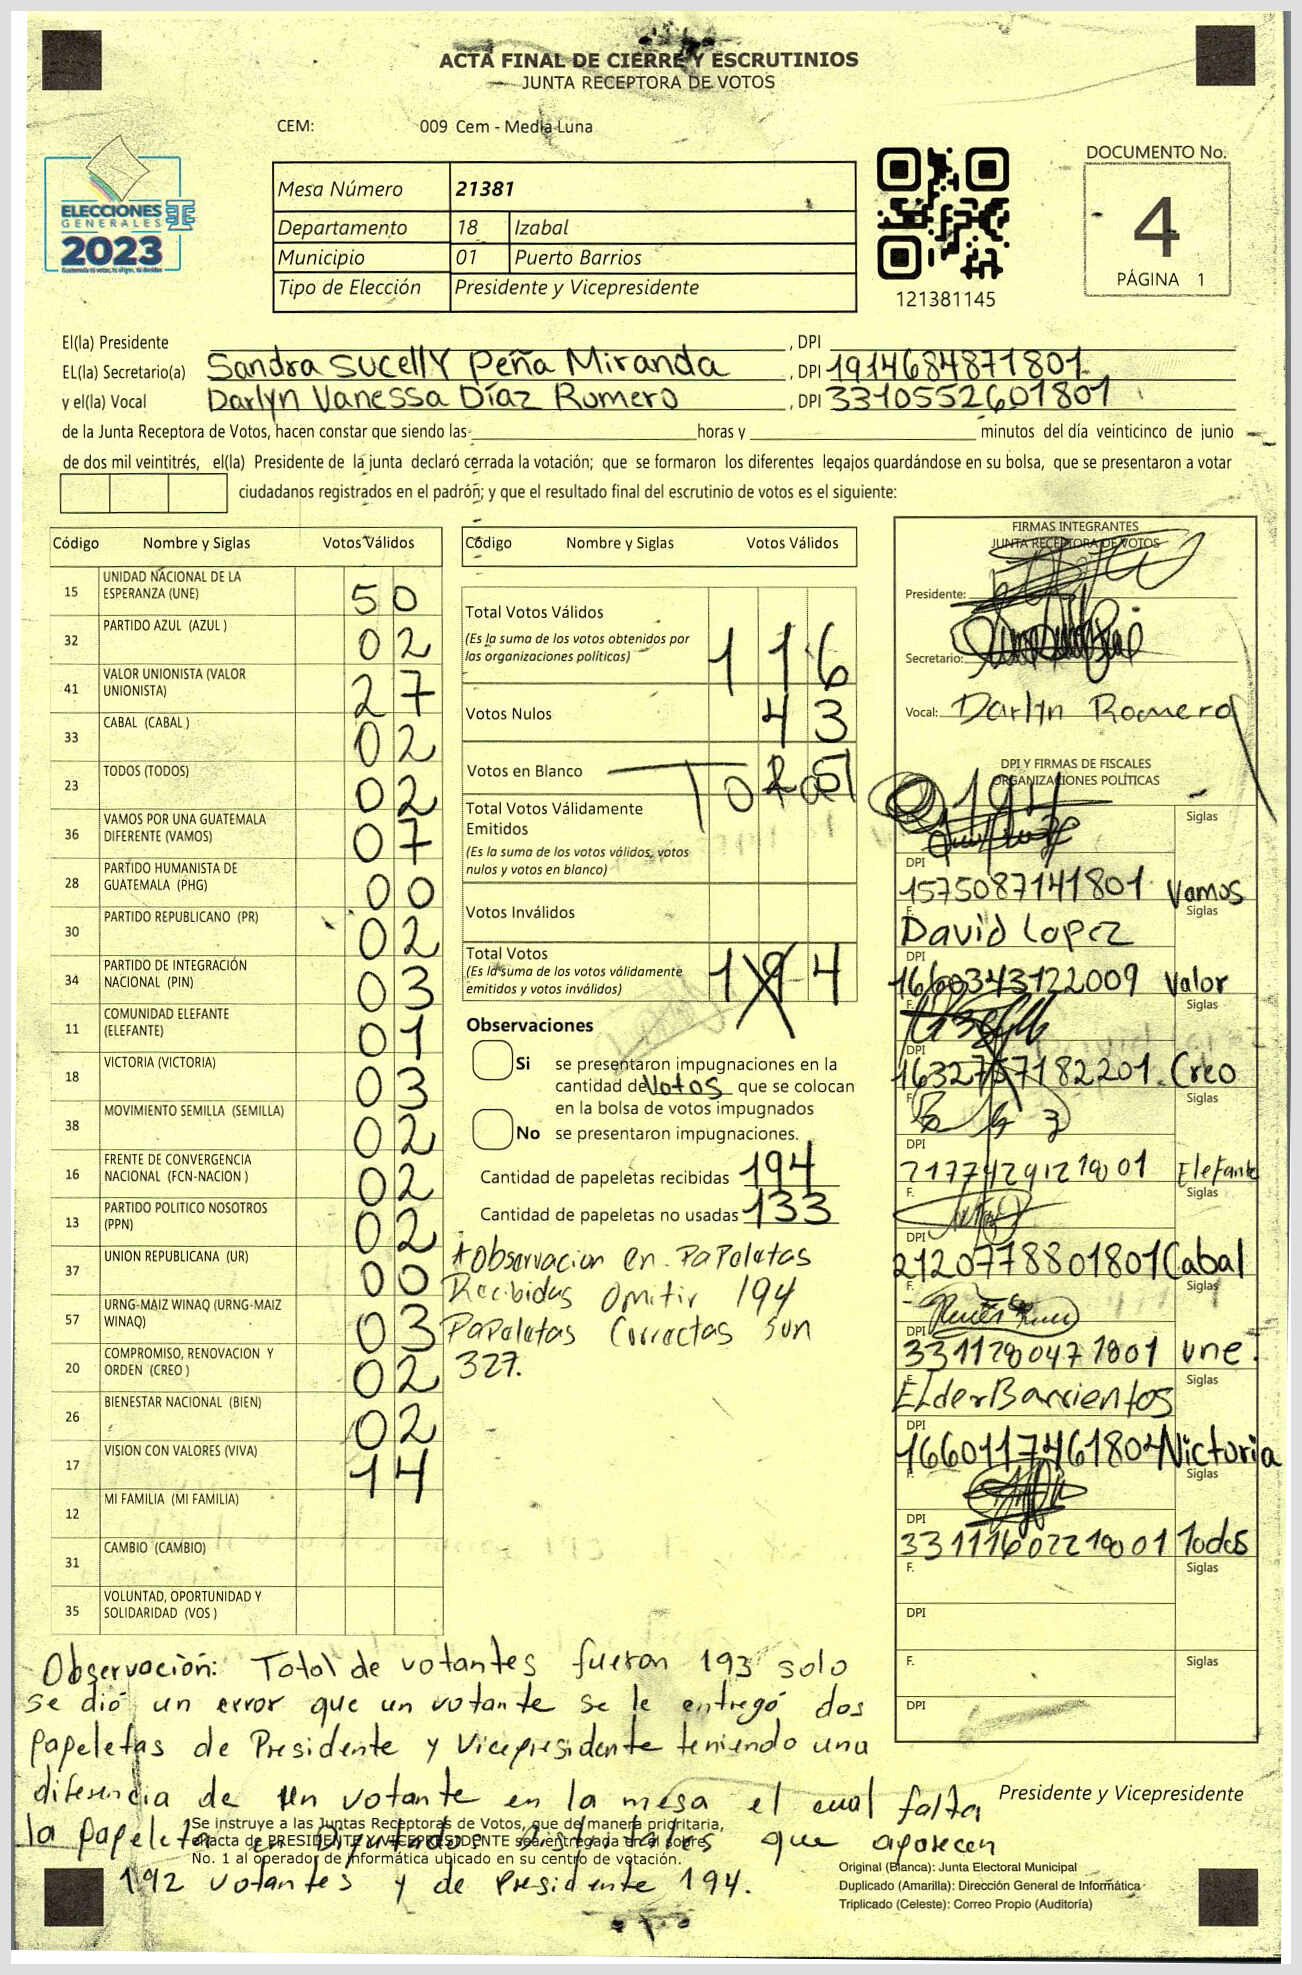 ACTA FINAL DE CIERRE Y ESCRUTINIOS
JUNTA RECEPTORA DE VOTOS
CEM: 009 Cem - Media Luna
DOCUMENTO No.
4
PÁGINA 1
ELECCIONES
GENERALES
2023
Mesa Número 21381
Departamento 18 Izabal
Municipio 01 Puerto Barrios
Tipo de Elección Presidente y Vicepresidente
121381145
El(la) Presidente , DPI
EL(la) Secretario(a) Sandra Sucelly Peña Miranda , DPI 1914684871801
y el(la) Vocal Darlyn Vanessa Díaz Romero , DPI 3310552601801
de la Junta Receptora de Votos, hacen constar que siendo las horas y minutos del día veinticinco de junio
de dos mil veintitrés, el(la) Presidente de la junta declaró cerrada la votación; que se formaron los diferentes legajos guardándose en su bolsa, que se presentaron a votar
ciudadanos registrados en el padrón; y que el resultado final del escrutinio de votos es el siguiente:
Código Nombre y Siglas Votos Válidos
15 UNIDAD NACIONAL DE LA
ESPERANZA (UNE) 50
32 PARTIDO AZUL (AZUL ) 02
41 VALOR UNIONISTA (VALOR
UNIONISTA) 27
33 CABAL (CABAL ) 02
23 TODOS (TODOS) 02
36 VAMOS POR UNA GUATEMALA
DIFERENTE (VAMOS) 07
28 PARTIDO HUMANISTA DE
GUATEMALA (PHG) 00
30 PARTIDO REPUBLICANO (PR) 02
34 PARTIDO DE INTEGRACIÓN
NACIONAL (PIN) 03
11 COMUNIDAD ELEFANTE
(ELEFANTE) 01
18 VICTORIA (VICTORIA) 03
38 MOVIMIENTO SEMILLA (SEMILLA) 02
16 FRENTE DE CONVERGENCIA
NACIONAL (FCN-NACION ) 02
13 PARTIDO POLITICO NOSOTROS
(PPN) 02
37 UNION REPUBLICANA (UR) 00
57 URNG-MAIZ WINAQ (URNG-MAIZ
WINAQ) 03
20 COMPROMISO, RENOVACION Y
ORDEN (CREO ) 02
26 BIENESTAR NACIONAL (BIEN) 02
17 VISION CON VALORES (VIVA) 14
12 MI FAMILIA (MI FAMILIA)
31 CAMBIO (CAMBIO)
35 VOLUNTAD, OPORTUNIDAD Y
SOLIDARIDAD (VOS )
Código Nombre y Siglas Votos Válidos
Total Votos Válidos
(Es la suma de los votos obtenidos por
las organizaciones políticas) 116
Votos Nulos 43
Votos en Blanco
Total
Total Votos Válidamente
Emitidos
(Es la suma de los votos válidos, votos
nulos y votos en blanco)
Votos Inválidos
Total Votos
(Es la suma de los votos válidamente
emitidos y votos inválidos) 194
Observaciones
Si se presentaron impugnaciones en la
cantidad de votos que se colocan
en la bolsa de votos impugnados
No se presentaron impugnaciones.
Cantidad de papeletas recibidas 194
Cantidad de papeletas no usadas 133
*Observacion en Papeletas
Recibidas omitir 194
Papeletas Correctas son
327.
FIRMAS INTEGRANTES
JUNTA RECEPTORA DE VOTOS
Presidente:
Secretario:
Vocal: Darlyn Romero
DPI Y FIRMAS DE FISCALES
ORGANIZACIONES POLÍTICAS
194
Siglas
DPI
1575087141801 Vamos
F. Siglas
David Lopez
DPI
1660343122009 Valor
F. Siglas
DPI
1632757182201 Creo
F. Siglas
DPI
2177429121801 Elefante
F. Siglas
DPI
2120778801801 Cabal
F. Siglas
DPI
3311280471801 une.
F. Siglas
Elder Barrientos
DPI
1660117461804 Victoria
F. Siglas
DPI
3311160221801 Todos
F. Siglas
DPI
F. Siglas
DPI
Observación: Total de votantes fueron 193 solo
se dió un error que un votante se le entregó dos
papeletas de Presidente y Vicepresidente teniendo una
diferencia de un votante en la mesa el cual falta
la papeleta en Diputados Distritales que aparecen
192 votantes y de Presidente 194.
Presidente y Vicepresidente
Se instruye a las Juntas Receptoras de Votos, que de manera prioritaria,
el acta de PRESIDENTE Y VICEPRESIDENTE sea entregada en el sobre
No. 1 al operador de informática ubicado en su centro de votación.
Original (Blanca): Junta Electoral Municipal
Duplicado (Amarilla): Dirección General de Informática
Triplicado (Celeste): Correo Propio (Auditoría)